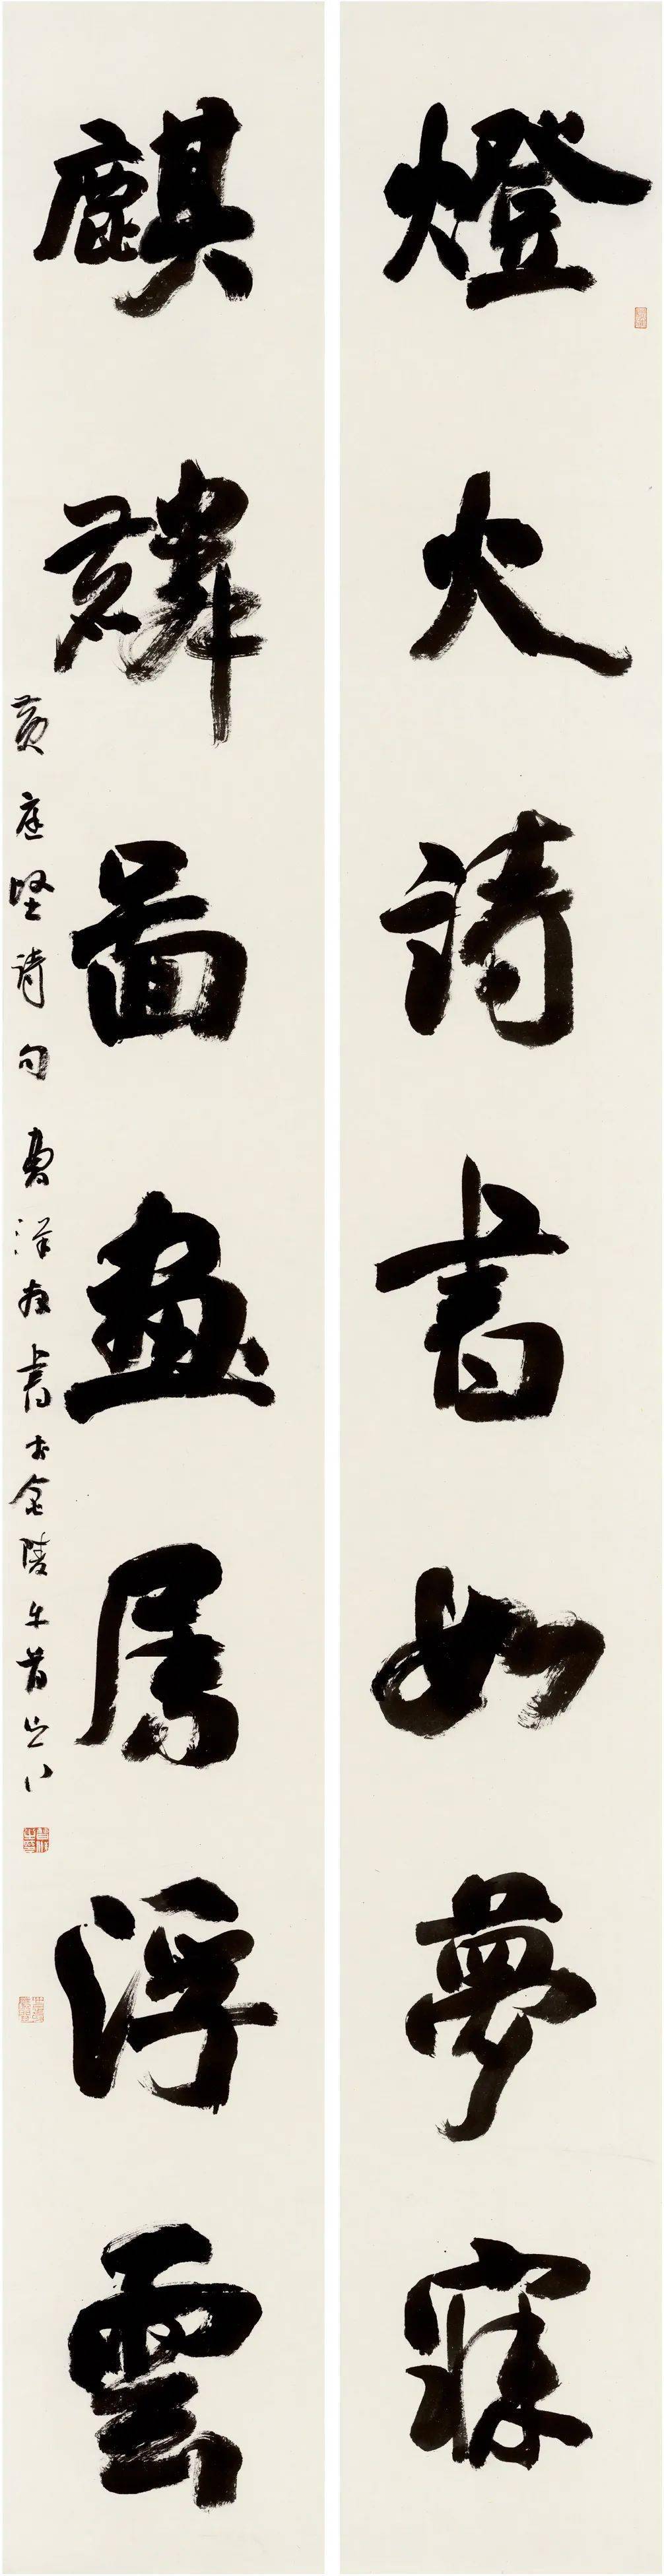 燈火詩書如夢寐
麒麟圖畫屬浮雲
黄庭堅詩句 曹洋敬書於金陵牛首山下